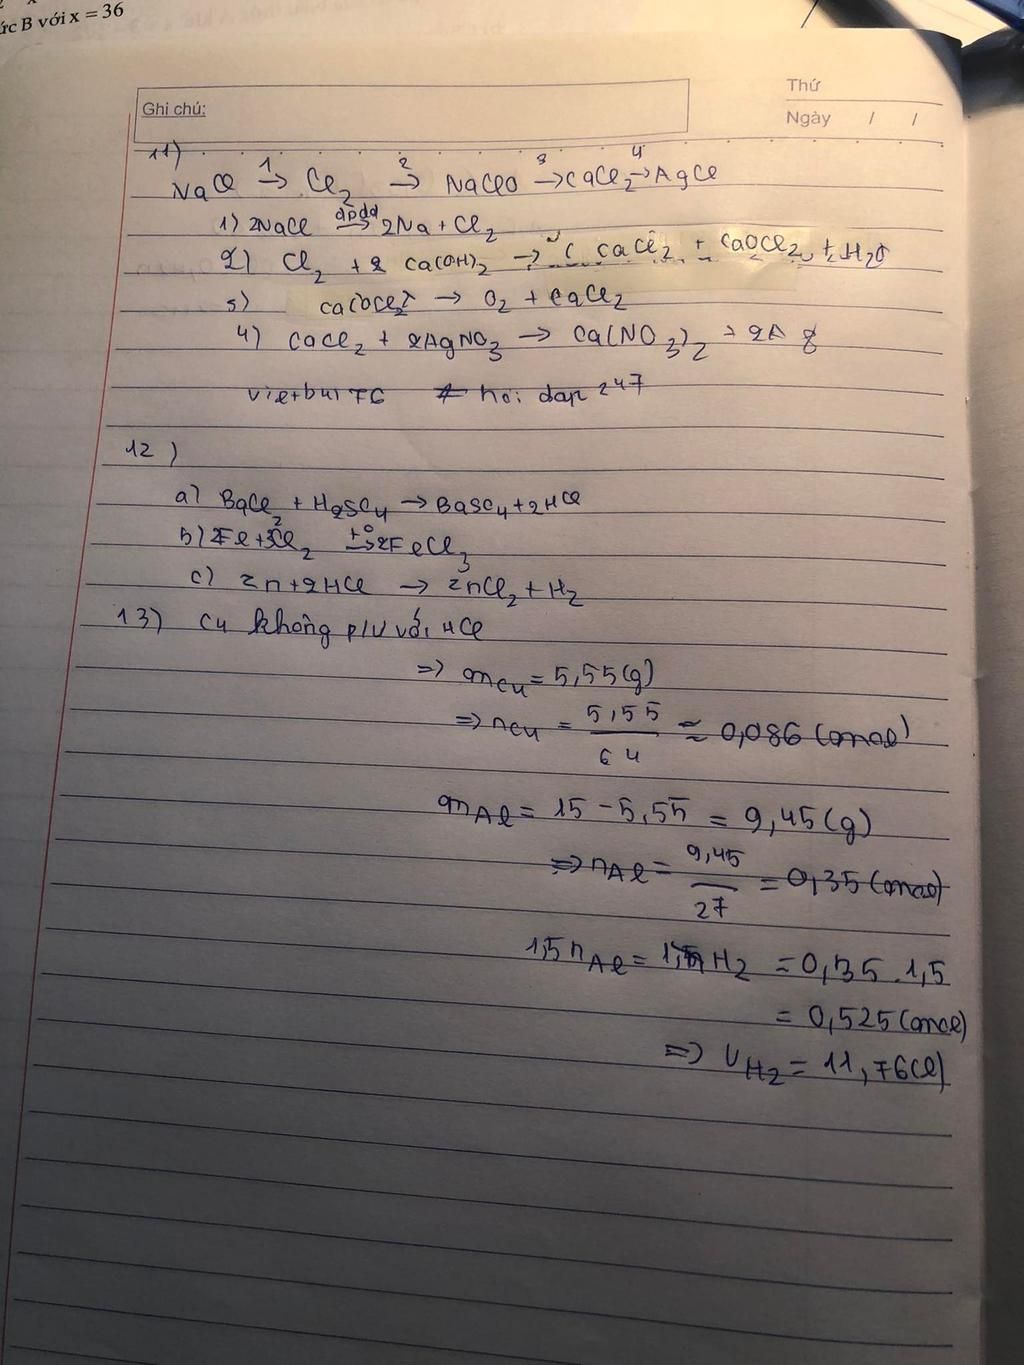 ức B với x = 36
Ghi chú:
Thứ
Ngày / /
11)
NaCl →1 Cl2 →2 NaClO →3 CaCl2 →4 AgCl
1) 2NaCl →đpdd 2Na + Cl2
2) Cl2 + 2 Ca(OH)2 → CaCl2 + CaOCl2 + H2O
3) CaOCl2 → O2 + CaCl2
4) CaCl2 + 2AgNO3 → Ca(NO3)2 + 2A g
vietbui76 hoi dap 247
12)
a) BaCl2 + H2SO4 → BaSO4 + 2HCl
b) 2Fe + 3Cl2 →t0 2FeCl3
c) Zn + 2HCl → ZnCl2 + H2
13) Cu không p/ư với HCl
=> mCu = 5,55 (g)
=> nCu = 5,55/64 ≈ 0,086 (mol)
mAl = 15 - 5,55 = 9,45 (g)
=> nAl = 9,45/27 = 0,35 (mol)
1,5 nAl = H2 = 0,35 . 1,5
= 0,525 (mol)
=> VH2 = 11,76 (l)